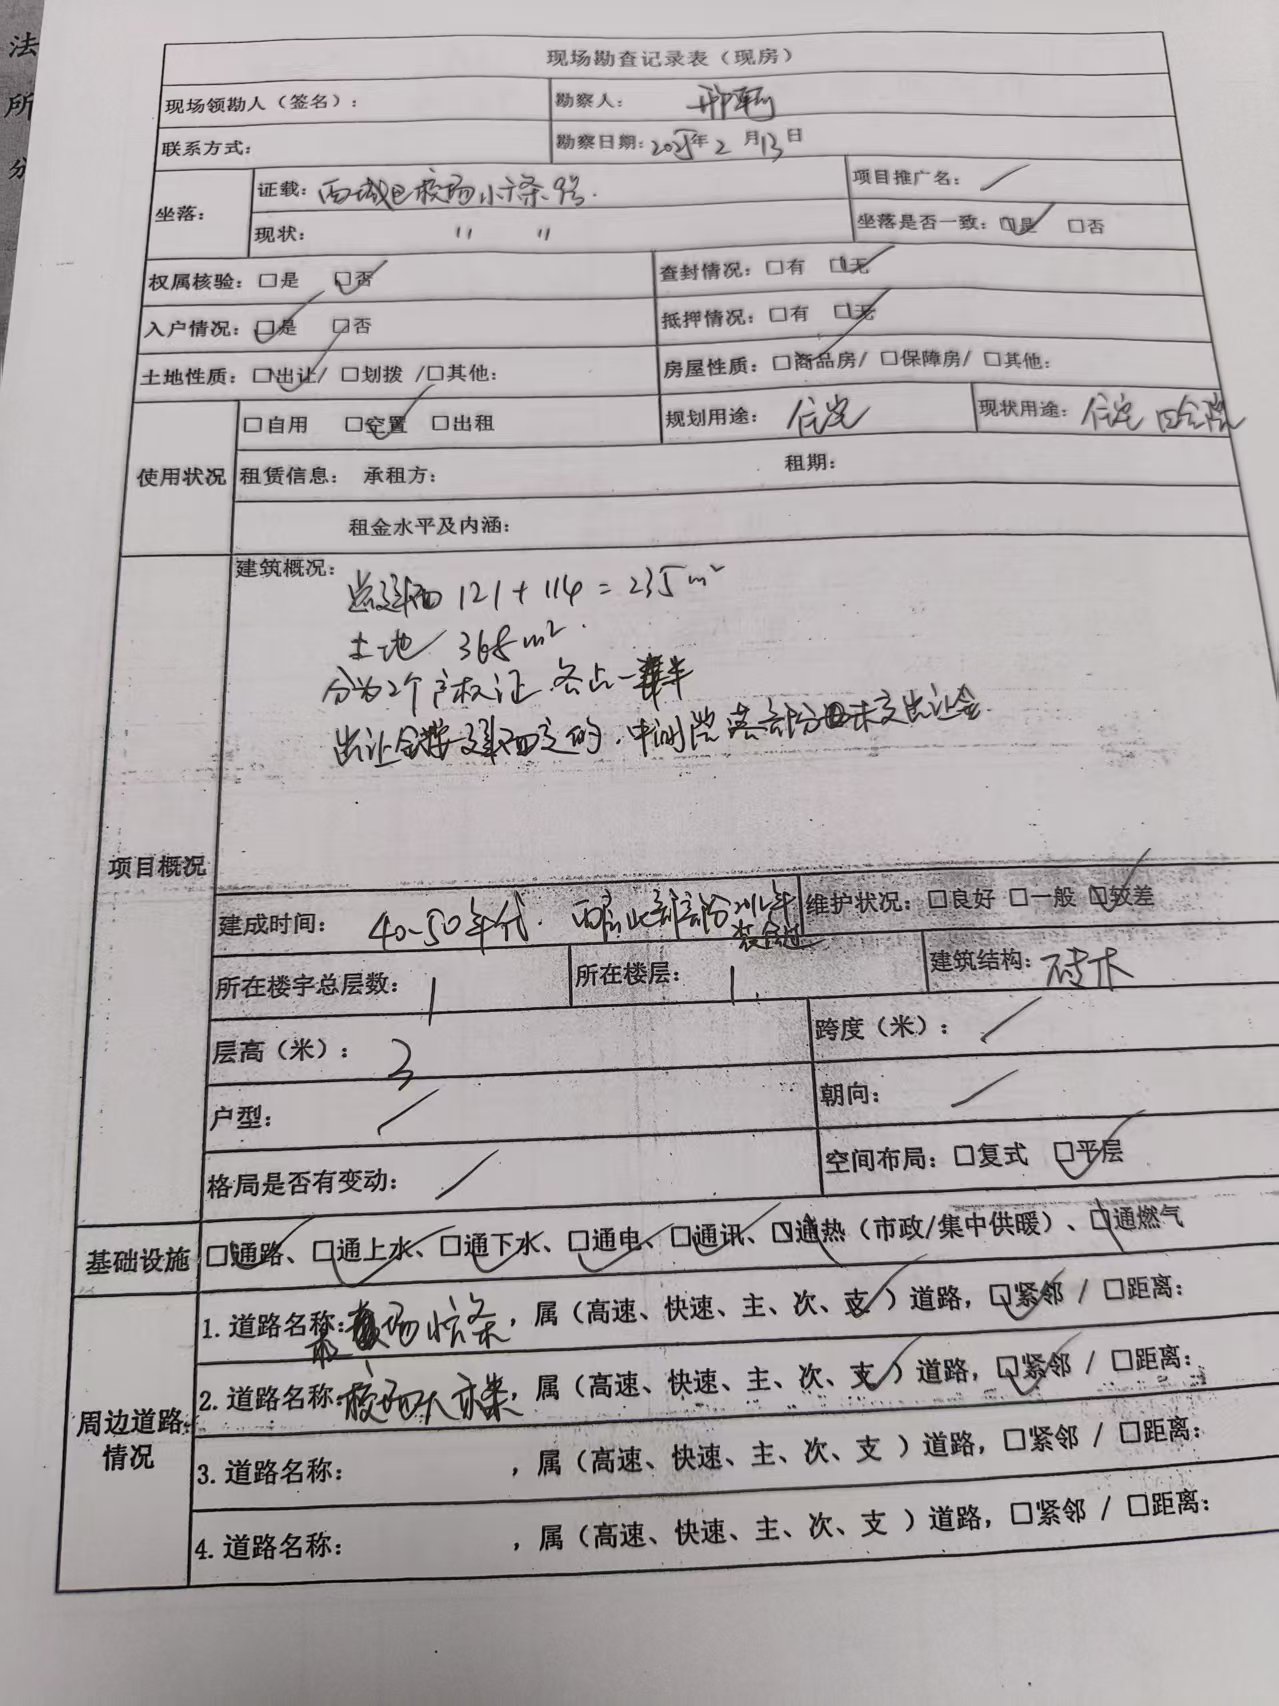 法
所
分
现场勘查记录表（现房）
现场领勘人（签名）： 勘察人：
联系方式： 勘察日期：2025年2月13日
坐落： 证载：西城区校场小六条9号. 项目推广名：/
现状：〃 〃 坐落是否一致：☑是 □否
权属核验：□是 ☑否 查封情况：□有 ☑无
入户情况：☑是 □否 抵押情况：□有 ☑无
土地性质：☑出让/ □划拨 /□其他： 房屋性质：☑商品房/ □保障房/ □其他：
使用状况 □自用 ☑空置 □出租 规划用途：住宅 现状用途：住宅 四合院
租赁信息： 承租方： 租期：
租金水平及内涵：
项目概况 建筑概况：
总建面 121+114=235m²
土地 368m².
分为2个产权证.各占一半
出让金按建面交的.中间院落部分未交出让金.
建成时间：40-50年代. 部分2012年 维护状况：□良好 □一般 ☑较差
所在楼宇总层数：1 所在楼层：1. 建筑结构：砖木
层高（米）：3 跨度（米）：/
户型：/ 朝向：/
格局是否有变动：/ 空间布局：□复式 ☑平层
基础设施 ☑通路、☑通上水、☑通下水、☑通电、☑通讯、☑通热（市政/集中供暖）、☑通燃气
周边道路情况 1.道路名称：校场小六条，属（高速、快速、主、次、支✓）道路，☑紧邻 / □距离：
2.道路名称：校场大六条，属（高速、快速、主、次、支✓）道路，☑紧邻 / □距离：
3.道路名称： ，属（高速、快速、主、次、支 ）道路，□紧邻 / □距离：
4.道路名称： ，属（高速、快速、主、次、支 ）道路，□紧邻 / □距离：